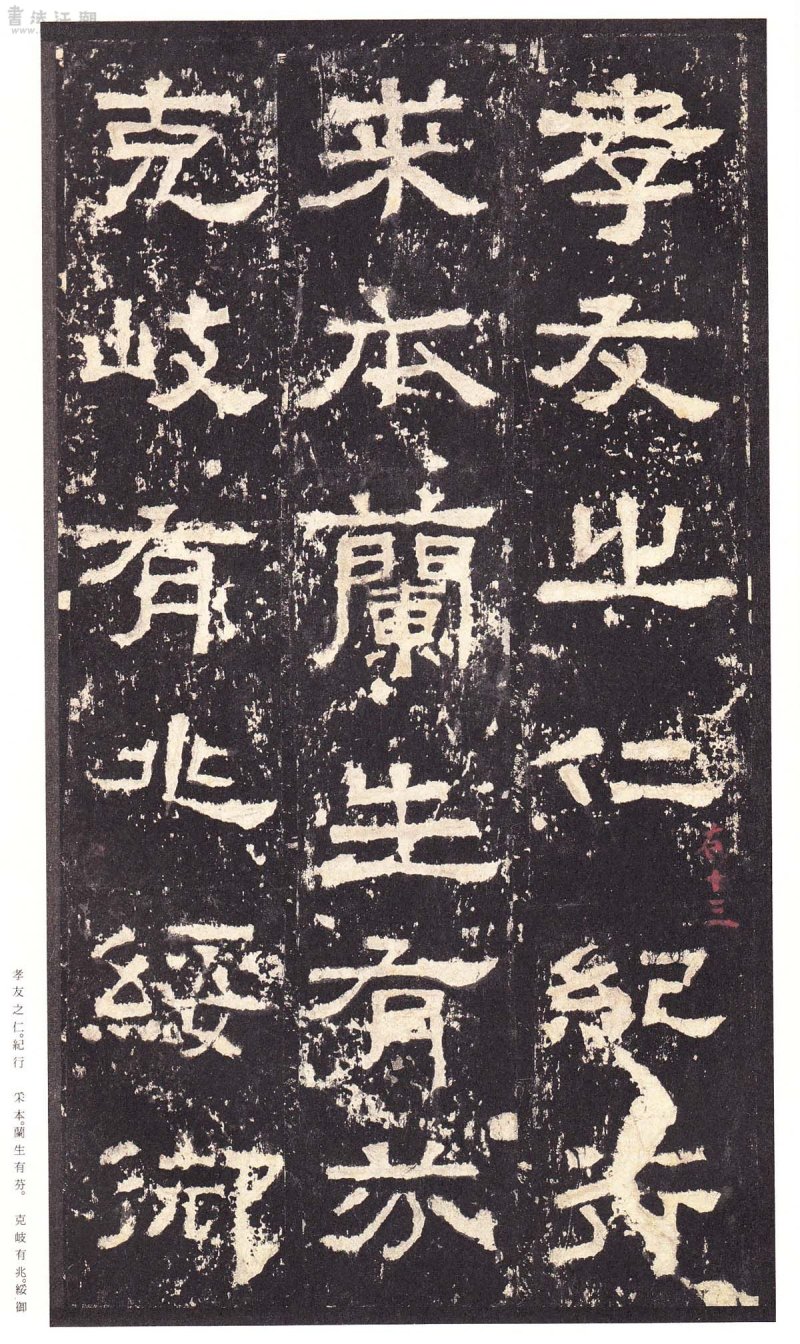 孝友之仁紀行
来本蘭生有芬
克岐有兆綏御
右十三
孝友之仁。紀行 来本。蘭生有芬。 克岐有兆。綏御
書法江湖